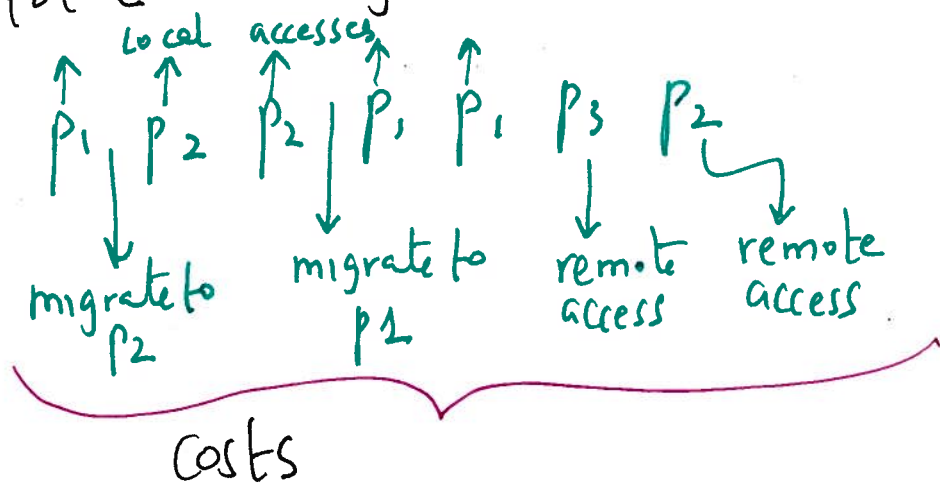 local accesses
P1 P2 P2 P1 P1 P3 P2
migrate to P2
migrate to P1
remote access
remote access
Costs